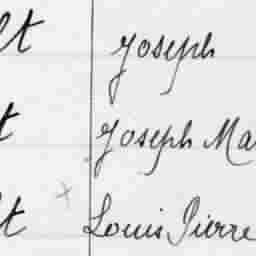 lt Joseph
t Joseph Ma
lt Louis Pierre